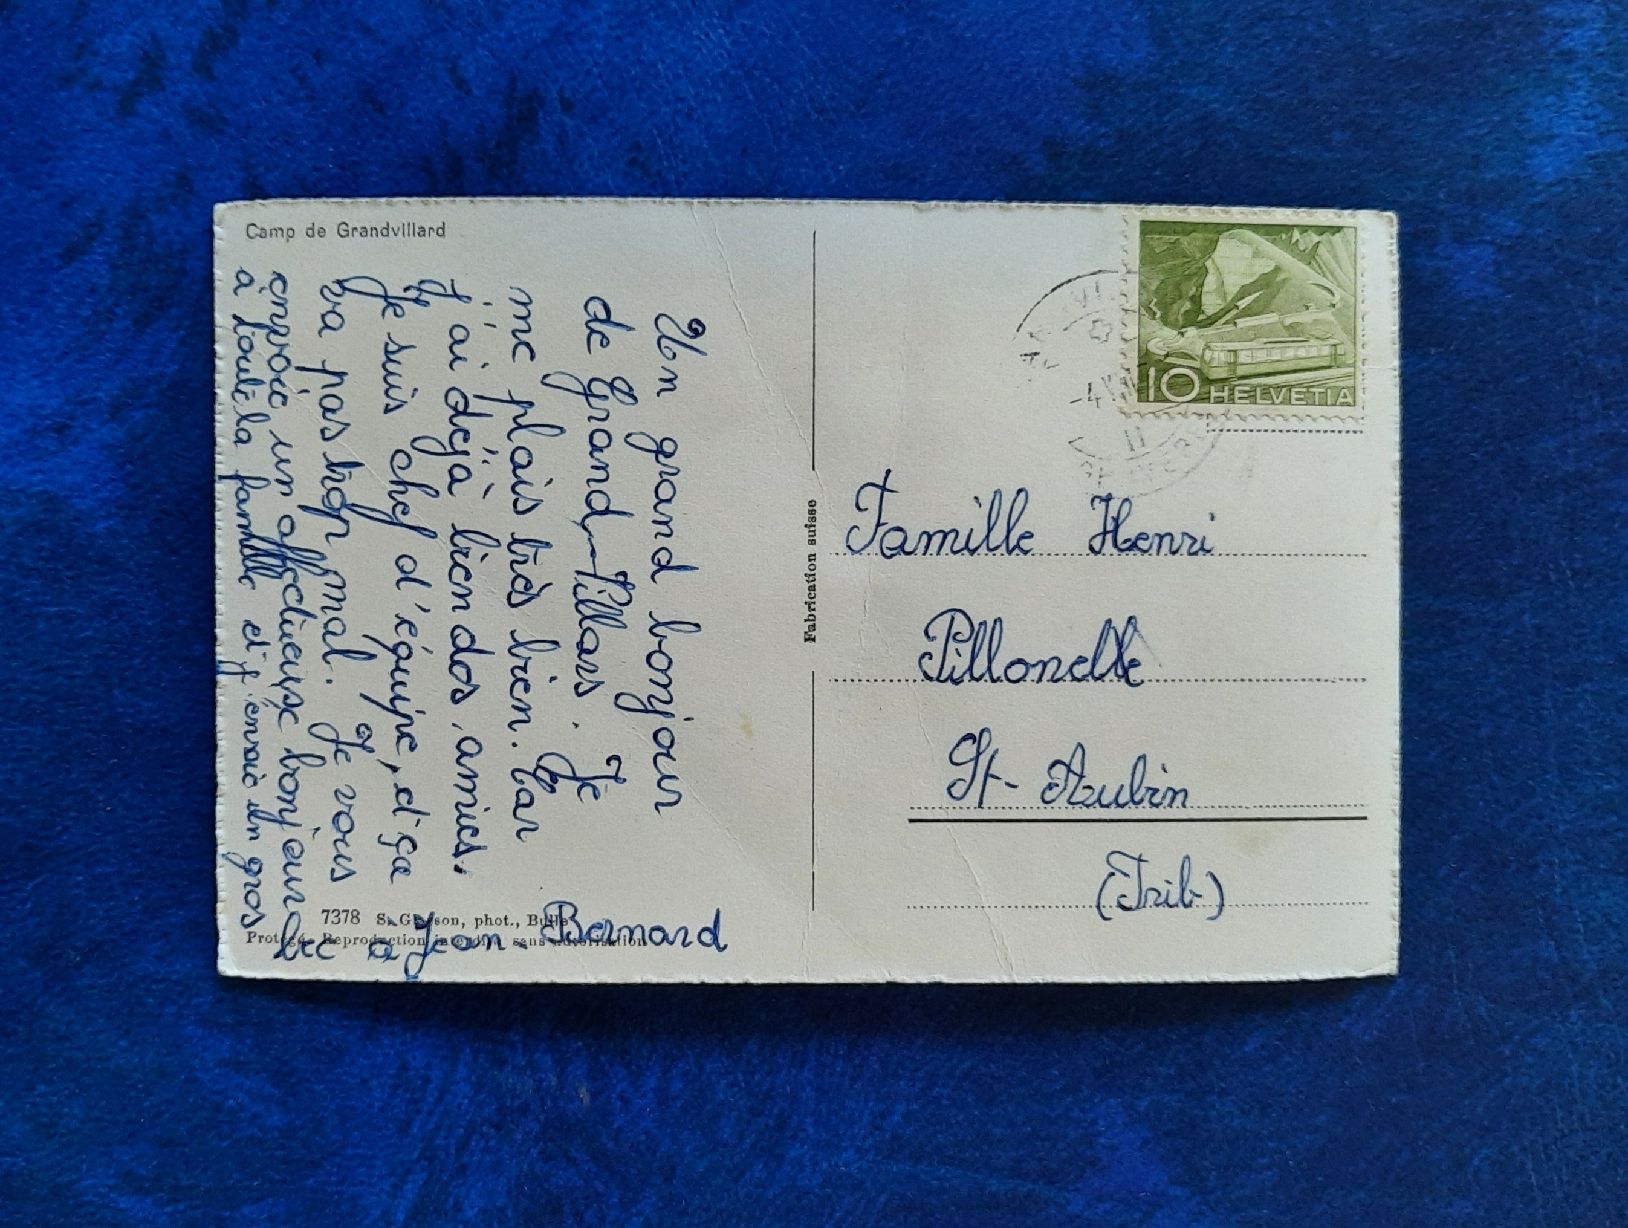 Camp de Grandvillard
Un grand bonjour
de Grand-Villars. Je
me plais très bien. Car
j'ai dejà bien dos amies.
Je suis chef d'équipe, et ça
va pas trop mal. Je vous
envoie un affectieuse bonjour
à toute la famille et j'envoie un gros
bec à Jean-Bernard
7378 S. Glasson, phot., Bulle
Protégé. Reproduction interdite sans autorisation
Fabrication suisse
10 HELVETIA
-4
11
Famille Henri
Pillonelle
St-Aubin
(Frib.)